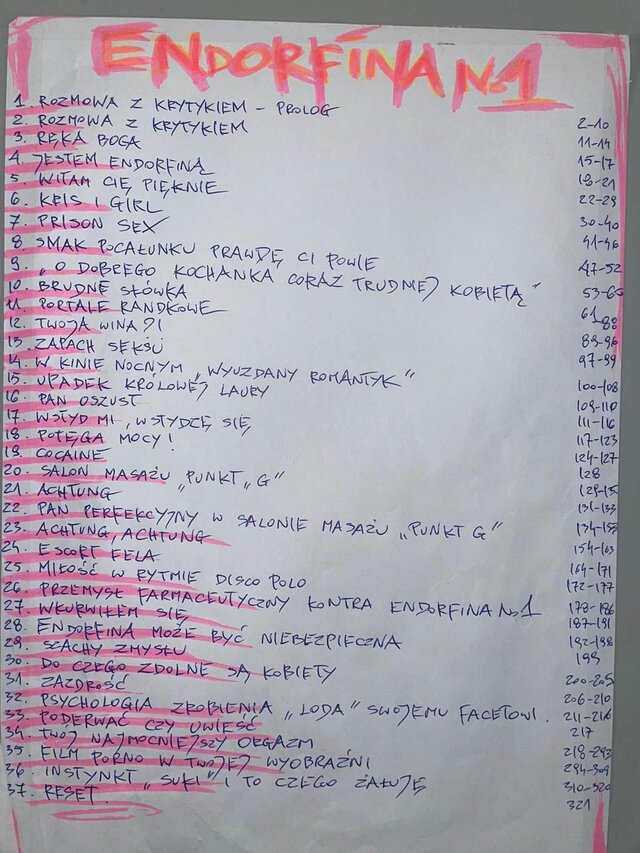 ENDORFINA No.1
1. ROZMOWA Z KRYTYKIEM - PROLOG
2. ROZMOWA Z KRYTYKIEM 2-10
3. RĘKA BOGA 11-14
4. JESTEM ENDORFINĄ 15-17
5. WITAM CIĘ PIĘKNIE 18-21
6. KRIS I GIRL 22-29
7. PRISON SEX 30-40
8. SMAK POCAŁUNKU PRAWDĘ CI POWIE 41-46
9. „O DOBREGO KOCHANKA CORAZ TRUDNIEJ KOBIETĄ" 47-52
10. BRUDNE SŁÓWKA 53-60
11. PORTALE RANDKOWE 61
12. TWOJA WINA?! 88
13. ZAPACH SEKSU 89-96
14. W KINIE NOCNYM „WYUZDANY ROMANTYK" 97-99
15. UPADEK KRÓLOWEJ LAURY 100-108
16. PAN OSZUST 109-110
17. WSTYD MI, WSTYDZĘ SIĘ 111-116
18. POTĘGA MOCY! 117-123
19. COCAINE 124-127
20. SALON MASAŻU „PUNKT „G" 128
21. ACHTUNG
22. PAN PERFEKCYJNY W SALONIE MASAŻU „PUNKT G" 131-133
23. ACHTUNG, ACHTUNG
24. ESCORT FELA 154-163
25. MIŁOŚĆ W RYTMIE DISCO POLO 164-171
26. PRZEMYSŁ FARMACEUTYCZNY KONTRA ENDORFINA No.1 172-177
27. WKURWIŁEM SIĘ 178-186
28. ENDORFINA MOŻE BYĆ NIEBEZPIECZNA 187-191
29. SZACHY ZMYSŁU 192-198
30. DO CZEGO ZDOLNE SĄ KOBIETY 199
31. ZAZDROŚĆ 200-205
32. PSYCHOLOGIA ZROBIENIA „LODA" SWOJEMU FACETOWI. 206-210
33. PODERWAĆ CZY UWIEŚĆ 211-216
34. TWÓJ NAJMOCNIEJSZY ORGAZM 217
35. FILM PORNO W TWOJEJ WYOBRAŹNI 218-293
36. INSTYNKT „SUKI" I TO CZEGO ŻAŁUJĘ 294-309
37. RESET. 310-320
321